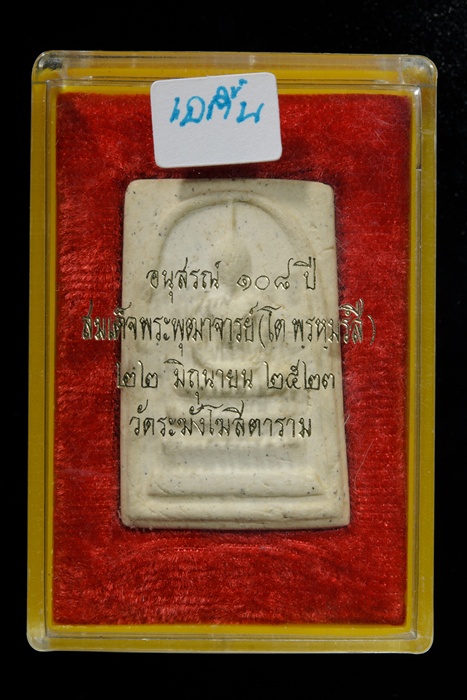 เอคัน
อนุสรณ์ ๑๐๘ ปี
สมเด็จพระพุฒาจารย์ (โต พฺรหฺมรํสี)
๒๒ มิถุนายน ๒๕๒๓
วัดระฆังโฆสิตาราม